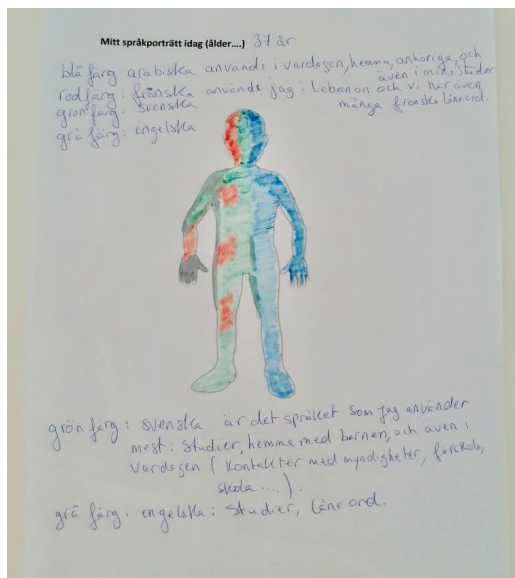 Mitt språkporträtt idag (ålder....) 37 år
blå färg: arabiska används i vardagen, hemma, anhöriga, och
även i mina studier
röd färg: franska används jag i Lebanon och vi har även
många franska låneord.
grön färg: svenska
grå färg: engelska
grön färg: svenska är det språket som jag använder
mest: studier, hemme med barnen, och även i
vardagen ( kontakter med myndigheter, förskola,
skola .... ).
grå färg: engelska: studier, låneord.